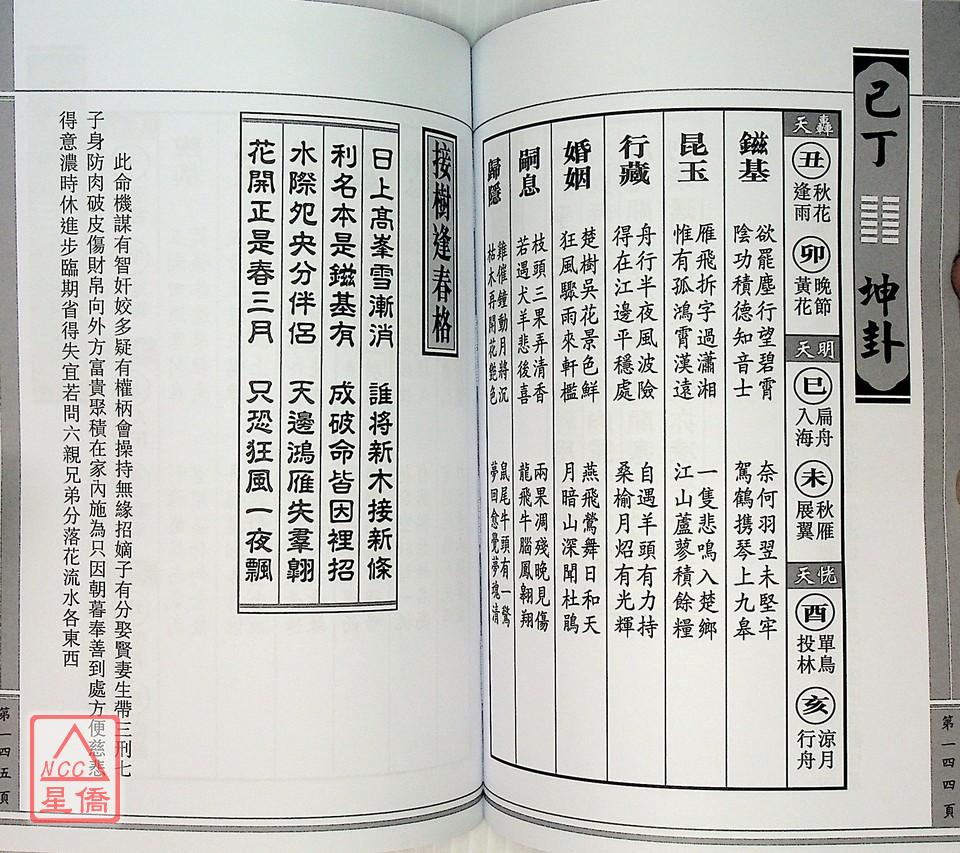 己丁 坤卦
轟天
丑 秋花逢雨
卯 晚節黃花
明天
巳 扁舟入海
未 秋雁展翼
恍天
酉 單鳥投林
亥 涼月行舟
鎡基
欲罷塵行望碧霄 奈何羽翌未堅牢
陰功積德知音士 駕鶴携琴上九皋
昆玉
雁飛拆字過瀟湘 一隻悲鳴入楚鄉
惟有孤鴻霄漢遠 江山蘆蓼積餘糧
行藏
舟行半夜風波險 自遇羊頭有力持
得在江邊平穩處 桑榆月炤有光輝
婚姻
楚樹吳花景色鮮 燕飛鶯舞日和天
狂風驟雨來軒檻 月暗山深聞杜鵑
嗣息
枝頭三果弄清香 兩果凋殘晚見傷
若遇犬羊悲後喜 龍飛牛腦鳳翱翔
歸隱
雞催鐘動月將沉 鼠尾牛頭有一驚
枯木再開花艷色 夢回愈覺夢魂清
第一四四頁
接樹逢春格
日上高峯雪漸消 誰將新木接新條
利名本是鎡基有 成破命皆因裡招
水際怨央分伴侶 天邊鴻雁失羣翱
花開正是春三月 只恐狂風一夜飄
此命機謀有智奸姣多疑有權柄會操持無緣招嫡子有分娶賢妻生帶三刑七
子身防肉破皮傷財帛向外方富貴聚積在家內施為只因朝暮奉善到處方便慈悲
得意濃時休進步臨期省得失宜若問六親兄弟分落花流水各東西
第一四五頁
NCC
星僑